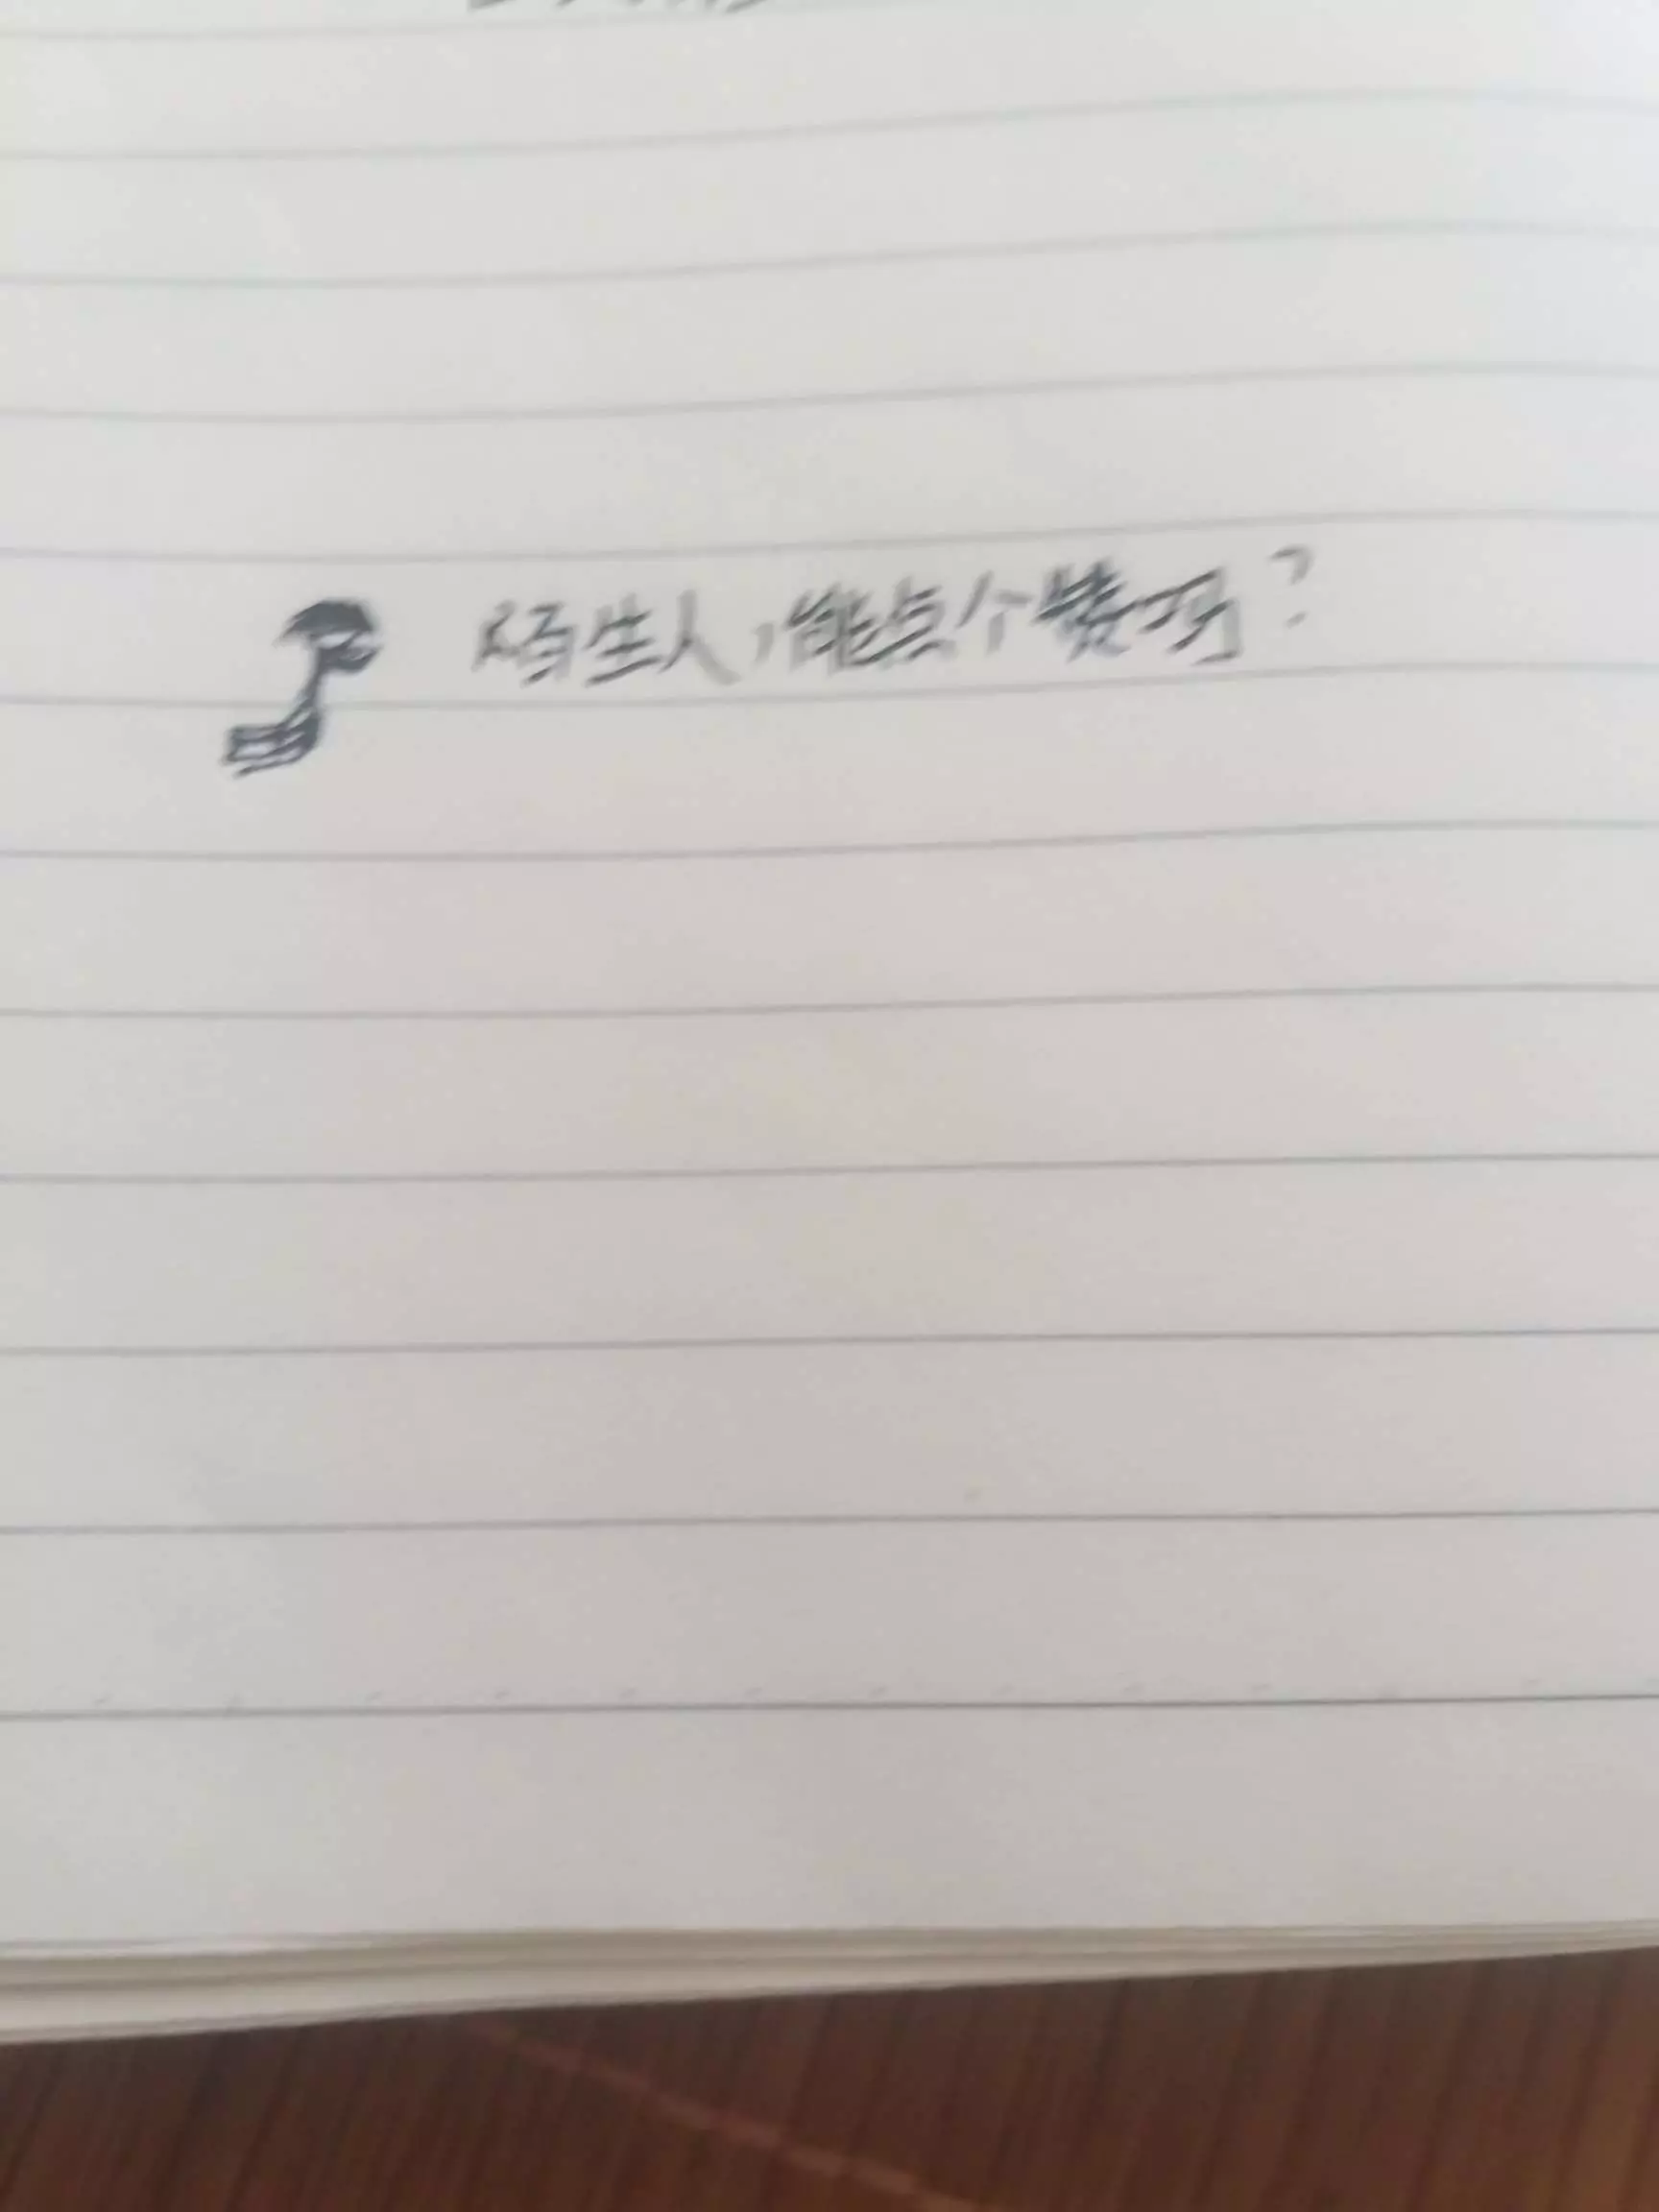 陌生人，能点个赞吗？